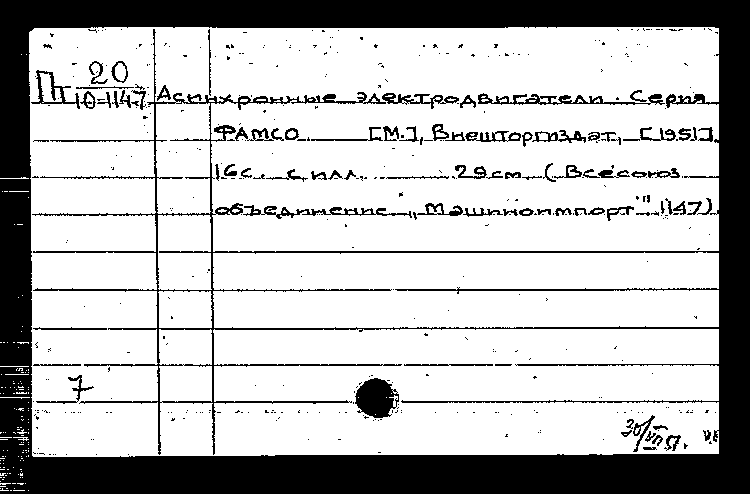 Пт 20
10-1147 Асинхронные электродвигатели. Серия
ФАМСО [М.], Внешторгиздат, [1951]
16с. с илл. 29см. (Всесоюз
объединение „Машиноимпорт" 1147)
7
30/VII 51.